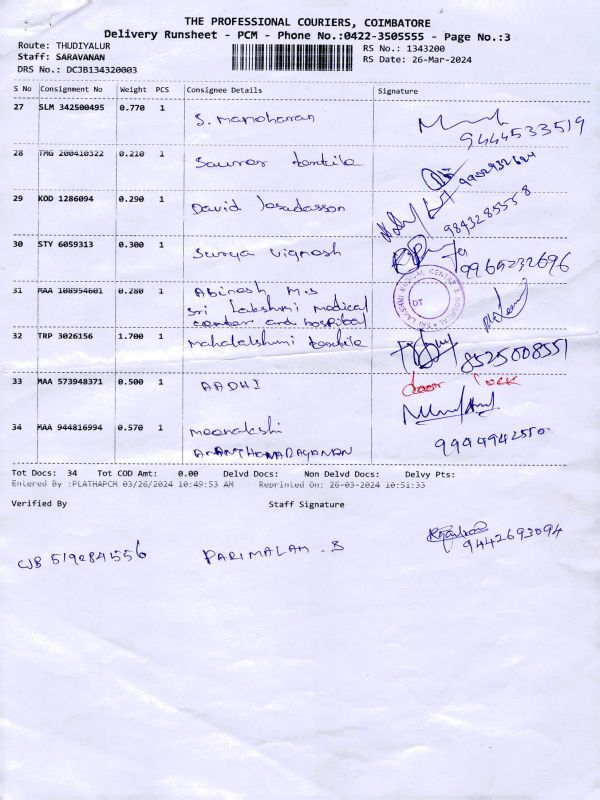 THE PROFESSIONAL COURIERS, COIMBATORE
Delivery Runsheet - PCM - Phone No.:0422-3505555 - Page No.:3
Route: THUDIYALUR RS No.: 1343200
Staff: SARAVANAN RS Date: 26-Mar-2024
DRS No.: DCJB134320003
S No Consignment No Weight PCS Consignee Details Signature
27 SLM 342500495 0.770 1 S. Manoharan 9444533519
28 TMG 200410322 0.210 1 textile
29 KOD 1286094 0.290 1 David 9843285558
30 STY 6059313 0.300 1 Surya Vignesh 9965232696
31 MAA 108954601 0.280 1 Abinash M.S
Sri Lakshmi medical
center and hospital
SRI LAKSHMI MEDICAL CENTRE & HOSPITAL
32 TRP 3026156 1.700 1 Mahalakshmi textile 8525008551
33 MAA 573948371 0.500 1 AADHI door lock
34 MAA 944816994 0.570 1 meenakshi
9994942550
Tot Docs: 34 Tot COD Amt: 0.00 Delvd Docs: Non Delvd Docs: Delvy Pts:
Entered By :PLATHAPCM 03/26/2024 10:49:53 AM Reprinted On: 26-03-2024 10:51:33
Verified By Staff Signature
CJB 519284556 PARIMALAM . S 9442693094